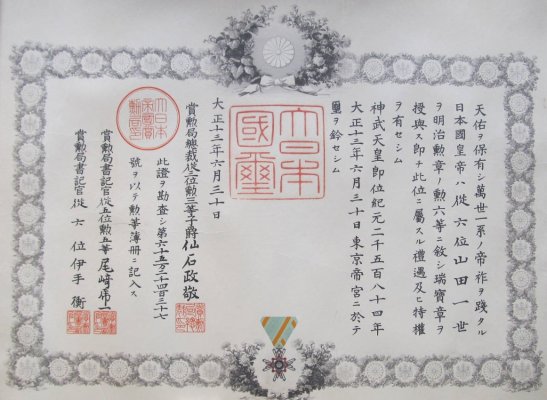 天佑ヲ保有シ萬世一系ノ帝祚ヲ踐タル
日本國皇帝ハ從六位山田一世
ヲ明治勲章ノ勲六等ニ敘シ瑞寶章ヲ
授與ス即チ此位ニ屬スル禮遇及ヒ特權
ヲ有セシム
神武天皇即位紀元二千五百八十四年
大正十三年六月三十日東京帝宮ニ於テ
璽ヲ鈐セシム
大日本國璽
大正十三年六月三十日
賞勲局總裁從三位勲三等子爵仙石政敬
大日本帝國賞勲局印
此證ヲ勘査シ第六十五万二千四百三十七
號ヲ以テ勲等簿冊ニ記入ス
賞勲局書記官從五位勲五等尾崎
賞勲局書記官從六位伊手衡